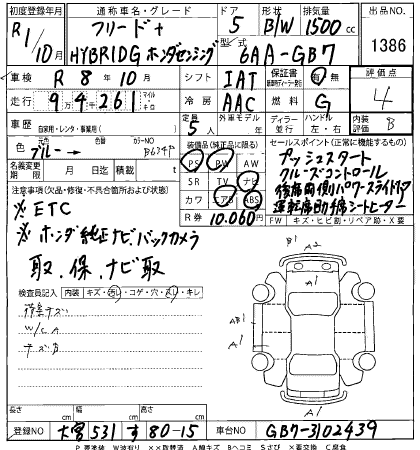 初度登録年月 通称車名・グレード ドア 形状 排気量 出品NO
R1/10月 フリード+ 5 B/W 1500cc 1386
HYBRID G ホンダセンシング 型式 6AA-GB7
車検 R 8年 10月 シフト IAT 保証書 有 無 評価点
走行 94,261 マイル キロ 冷房 AAC 燃料 G 4
車歴 自家用・レンタ・事業用( ) 定員 5人 外車モデル年 ディーラー 並行 ハンドル 左・右 内装 B
色 元色 ブルー→ カラーNO B624P 装備品(純正品に限る) セールスポイント(正常に機能する)
名義変更期限 月 日 迄 積載 PS PW AW プッシュスタート
SR TV ナビ クルーズコントロール
注意事項(欠品・修復・不具合箇所および状態) カワ エアB ABS 後席両側パワースライドドア
※ETC R券 10,060円 運転席助手席シートヒーター
FW キズ・ヒビ・リペア跡・X要
※ホンダ純正ナビバックカメラ
取、保、ナビ取
検査員記入 内装 キズ・汚れ・コゲ・穴・スレ・キレ
W/CA
B1 A2
A1
AB1
A1
A1
A1
長さ cm 幅 cm 高さ cm
登録NO 大宮 531 す 80-15 車台NO GB7-3102439
P 要塗装 W波有り ××取替済 A線キズ Bヘコミ Sさび X要交換 C腐食